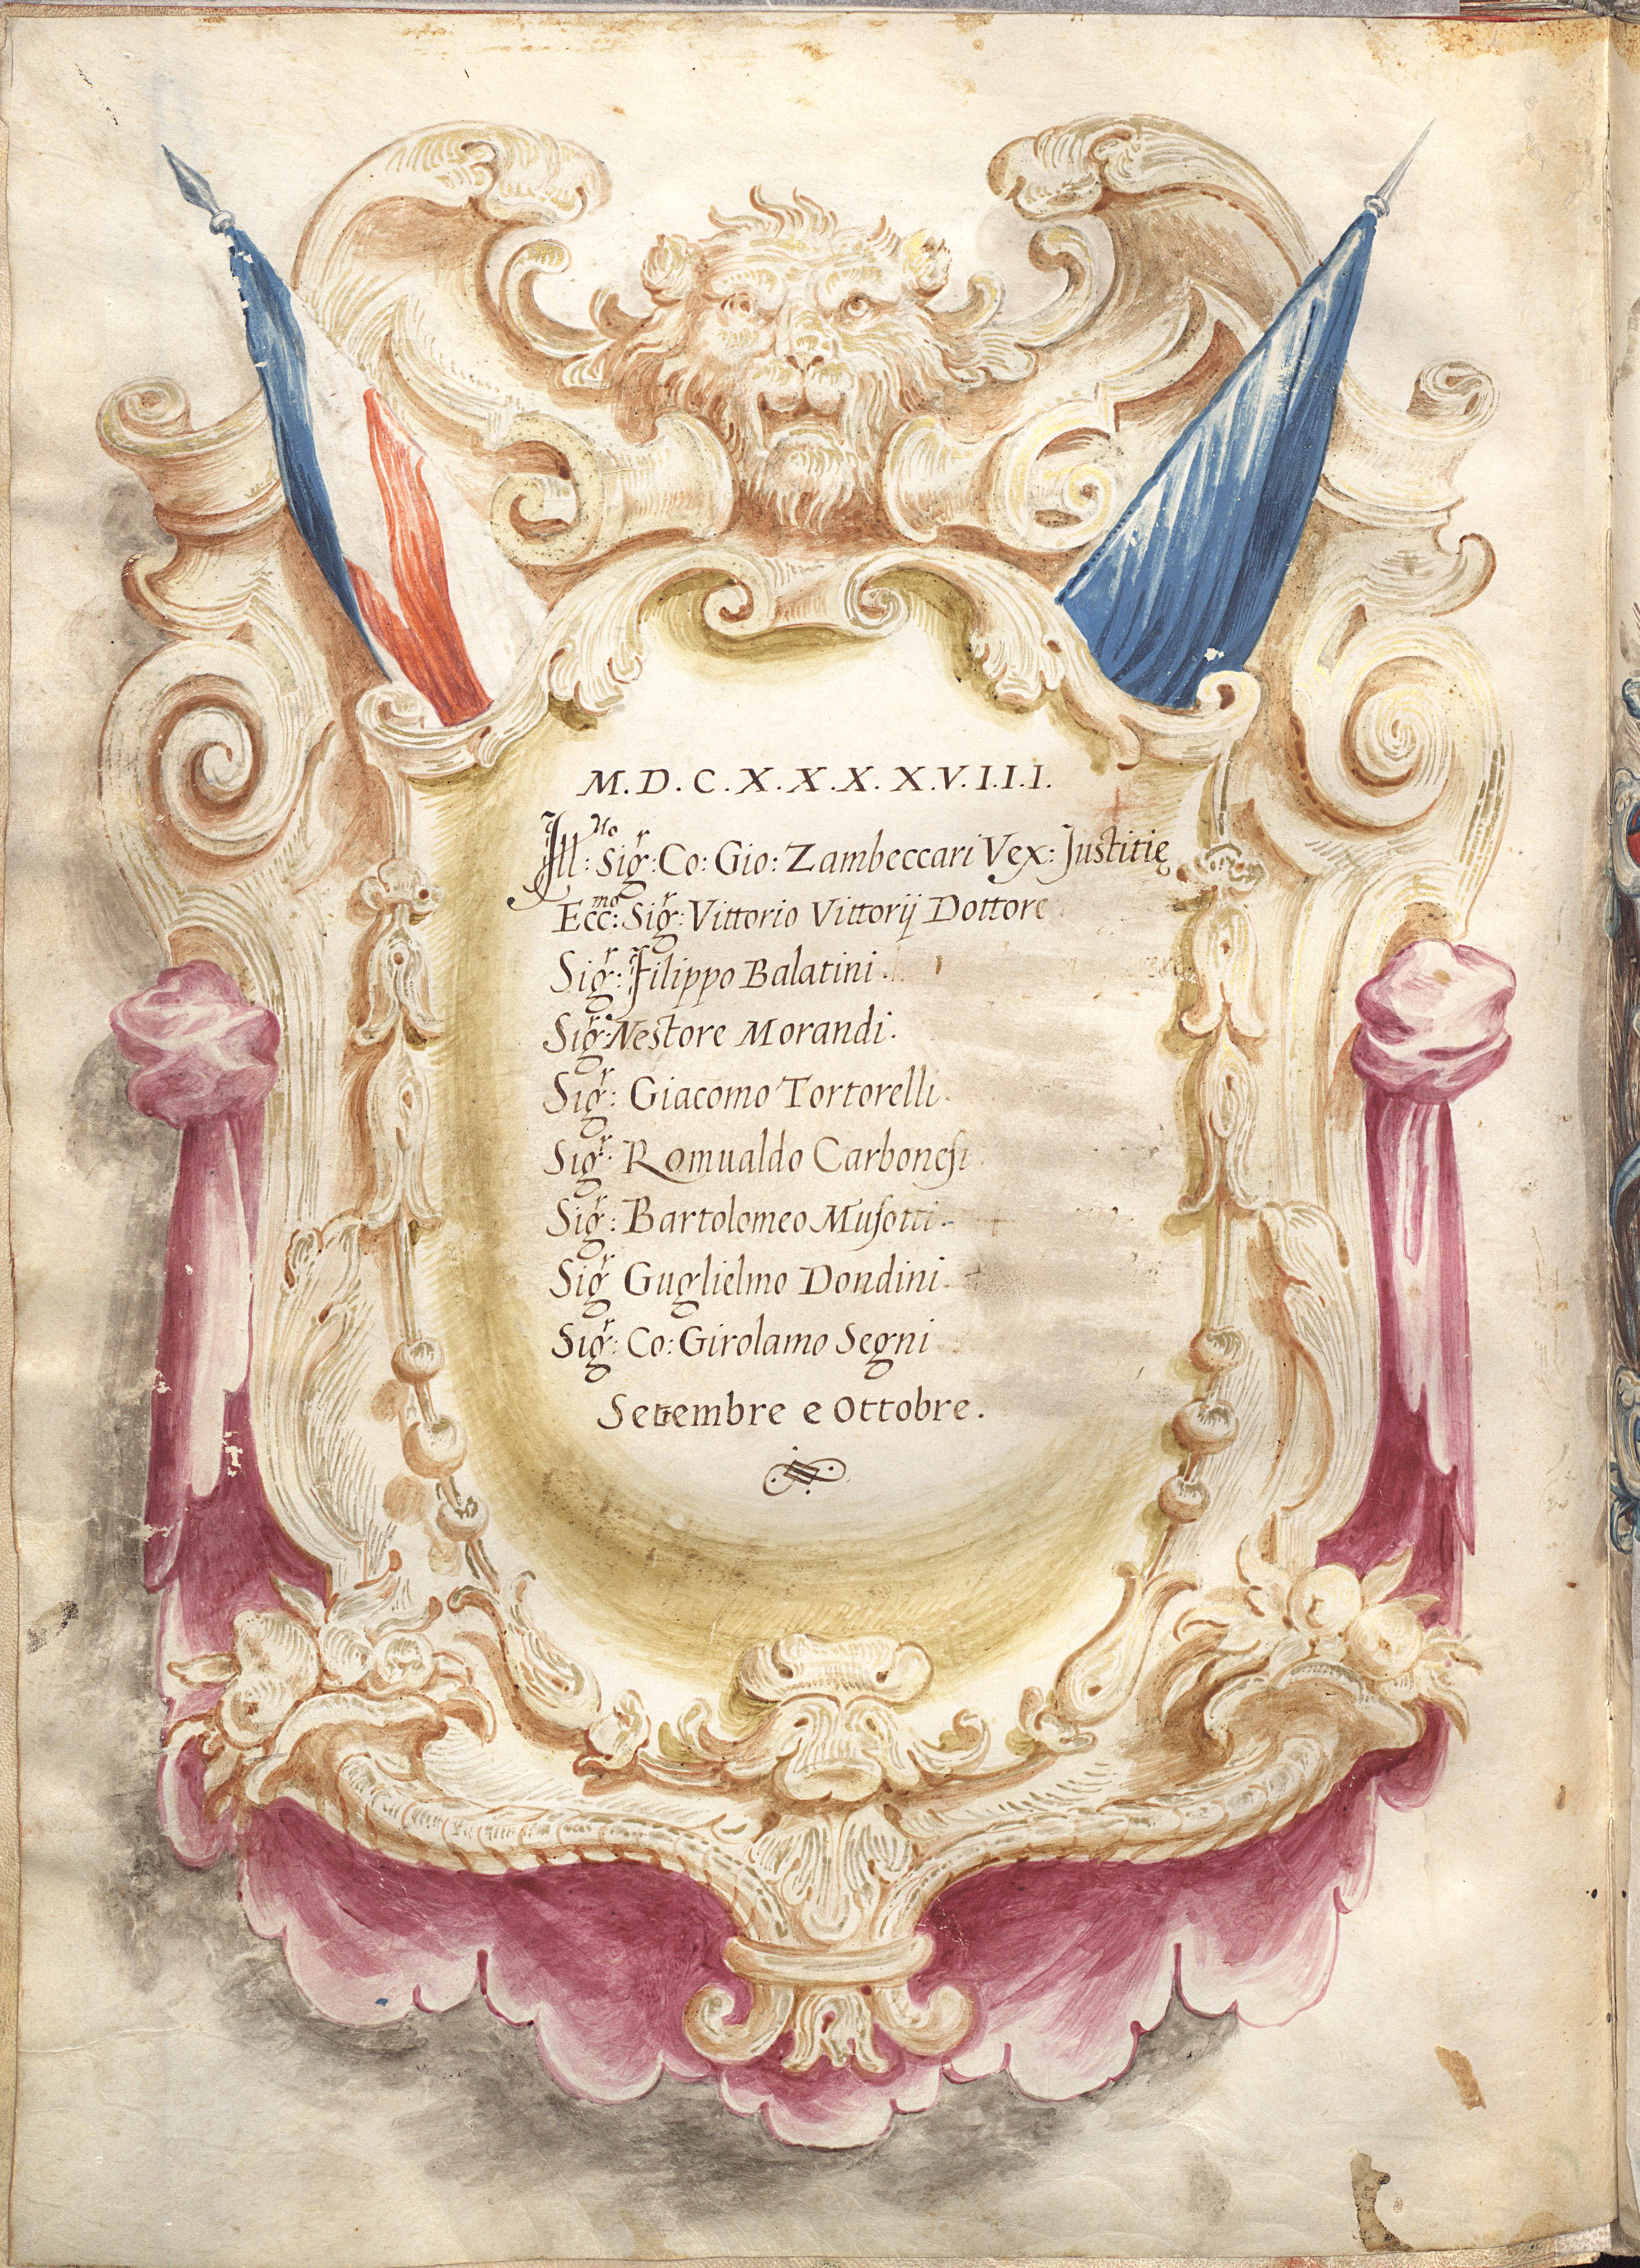 M.D.C.X.X.X.X.V.I.I.I.
Ill:mo Sig:r Co: Gio: Zambeccari Vex: Justitię
Ecc:mo Sig:r Vittorio Vittorij Dottore
Sig:r Filippo Balatini.
Sig:r Nestore Morandi.
Sig:r Giacomo Tortorelli.
Sig:r Romualdo Carboneſi
Sig:r Bartolomeo Muſotti.
Sig:r Guglielmo Dondini.
Sig:r Co: Girolamo Segni
Settembre e Ottobre.